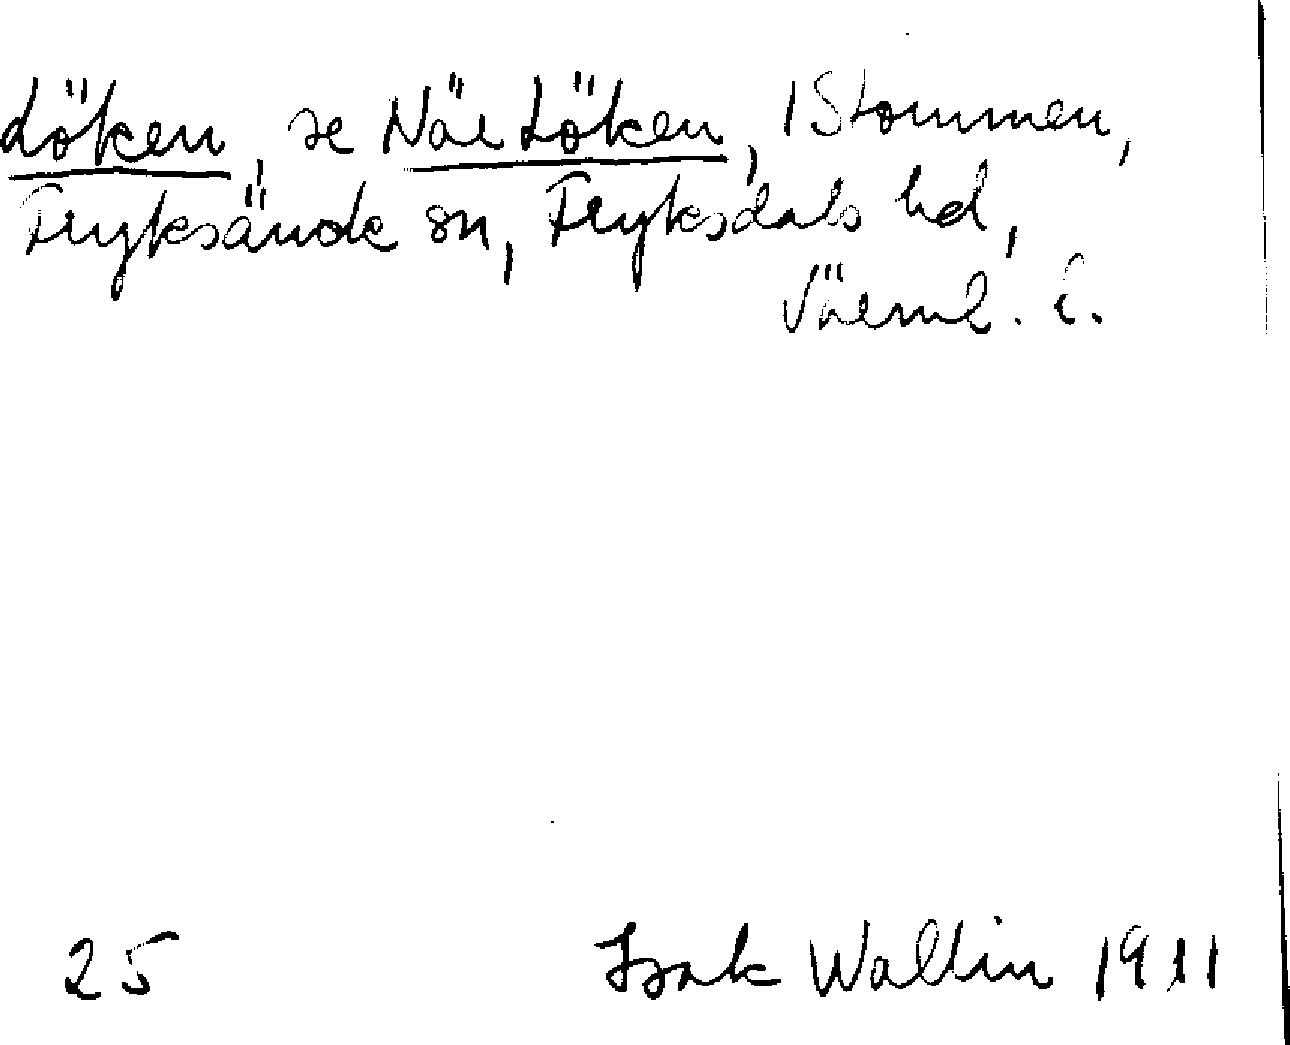 Löken, se När Löken, 1 Stommen,
Fryksände sn, Fryksdals hd,
Värml. l.
25 Isak Wallin 1911